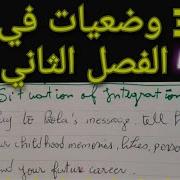 3 وضعيات في
الفصل الثاني
Situation of Integration
to Bela's message. tell h
r childhood memories, 
nd your future career.